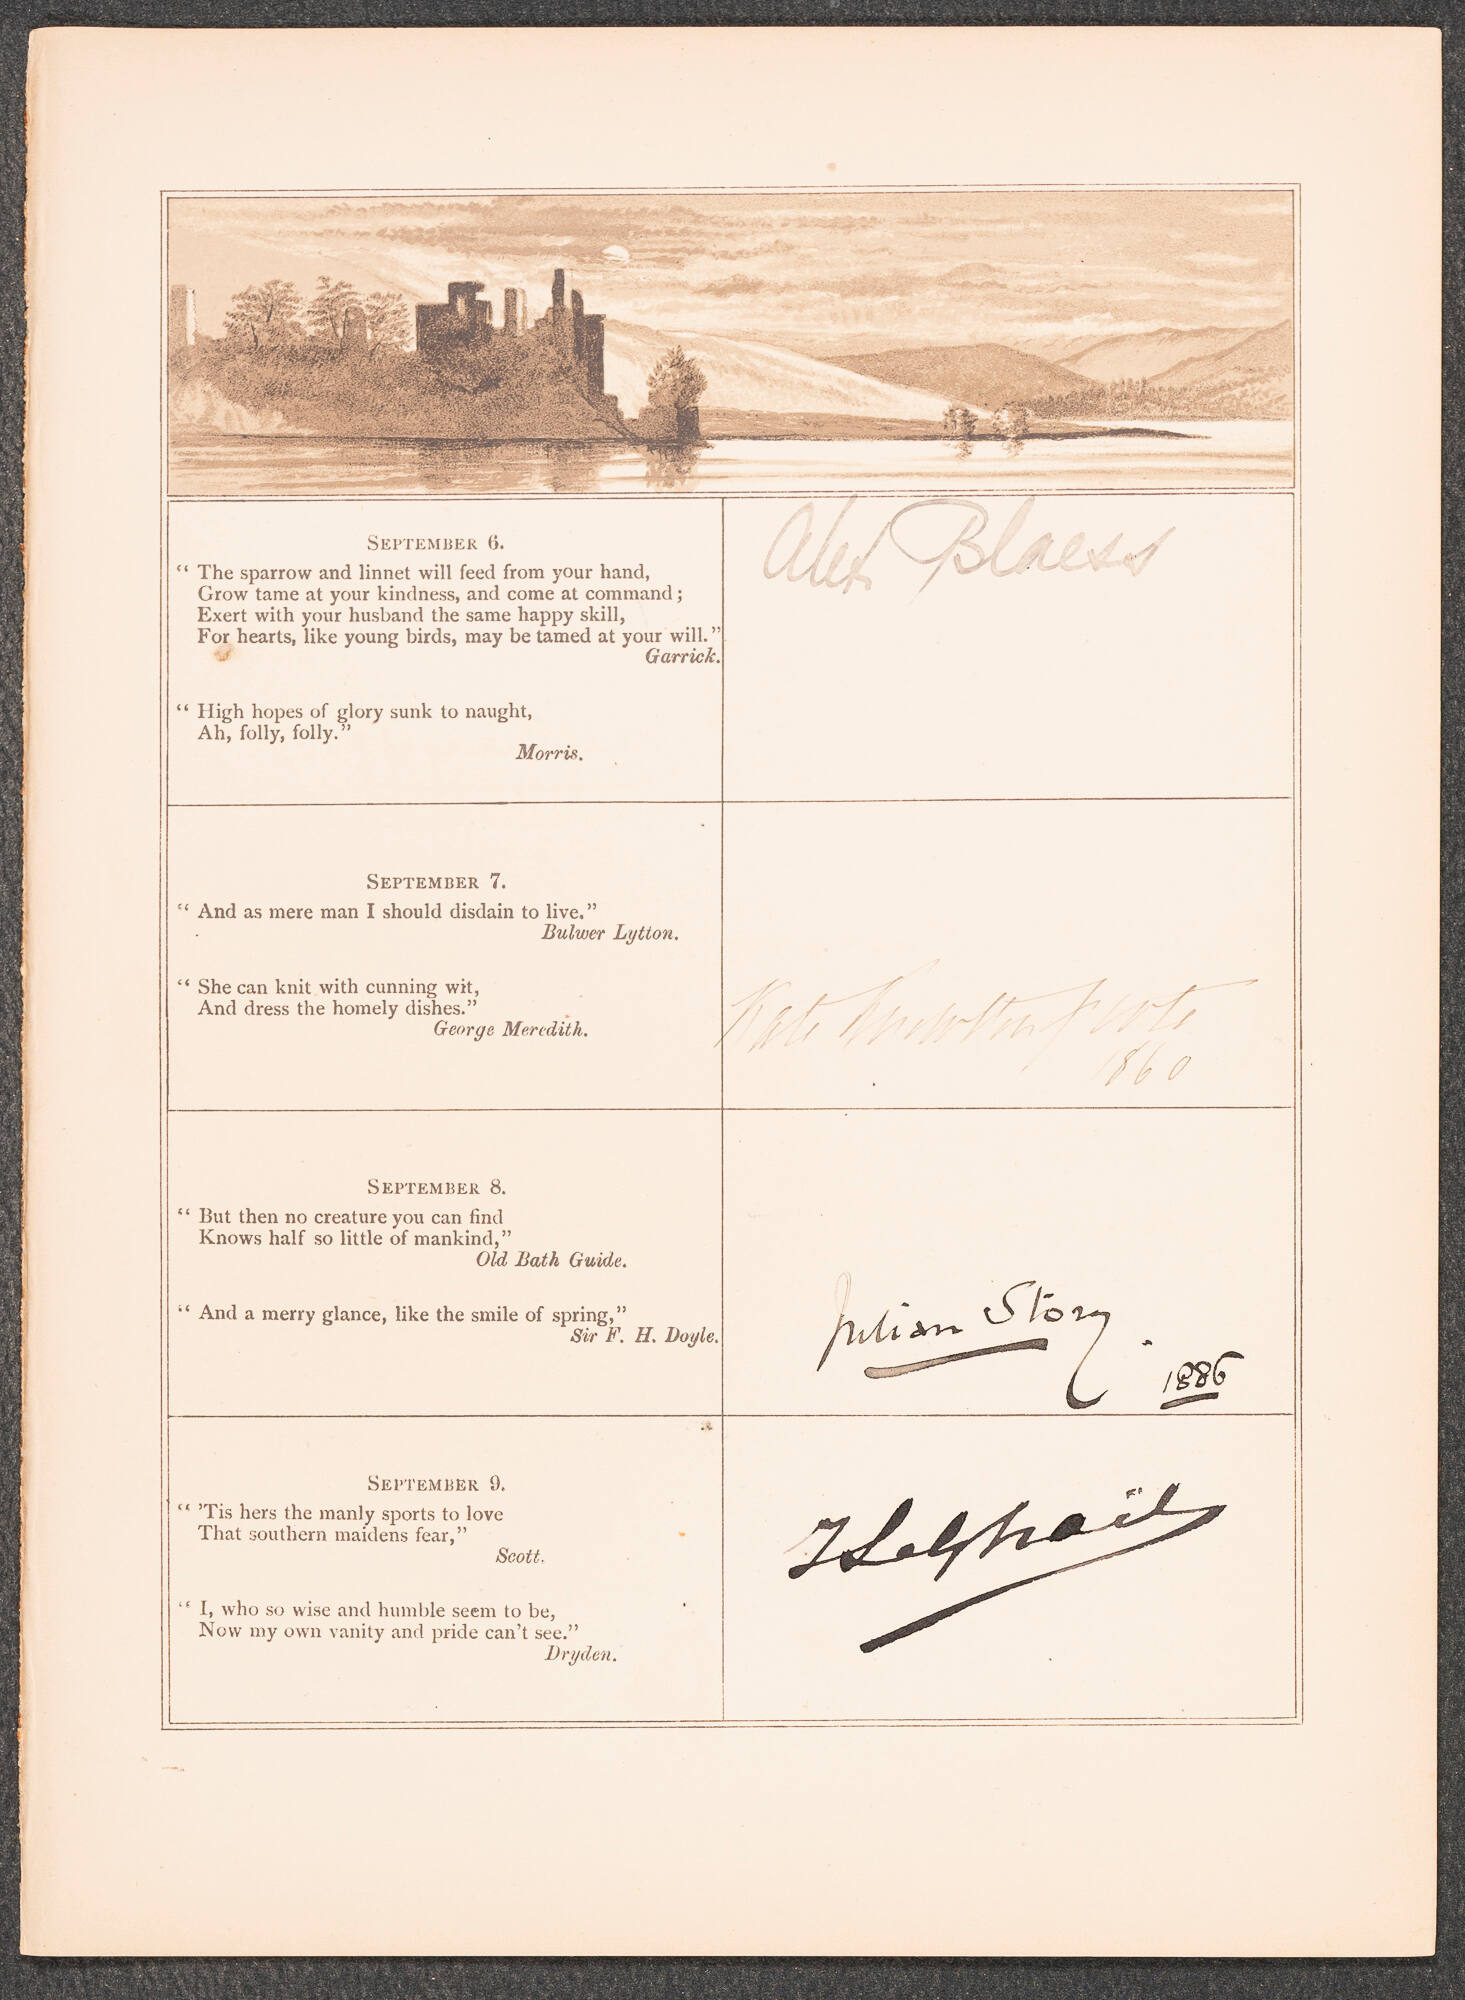 SEPTEMBER 6.
“ The sparrow and linnet will feed from your hand,
Grow tame at your kindness, and come at command ;
Exert with your husband the same happy skill,
For hearts, like young birds, may be tamed at your will.”
Garrick.
“ High hopes of glory sunk to naught,
Ah, folly, folly.”
Morris.
Alex Blaess
SEPTEMBER 7.
“ And as mere man I should disdain to live.”
Bulwer Lytton.
“ She can knit with cunning wit,
And dress the homely dishes.”
George Meredith.
Kate Knowlton Foote
1860
SEPTEMBER 8.
“ But then no creature you can find
Knows half so little of mankind,”
Old Bath Guide.
“ And a merry glance, like the smile of spring,”
Sir F. H. Doyle.
Julian Story
1886
SEPTEMBER 9.
“ 'Tis hers the manly sports to love
That southern maidens fear,”
Scott.
“ I, who so wise and humble seem to be,
Now my own vanity and pride can't see.”
Dryden.